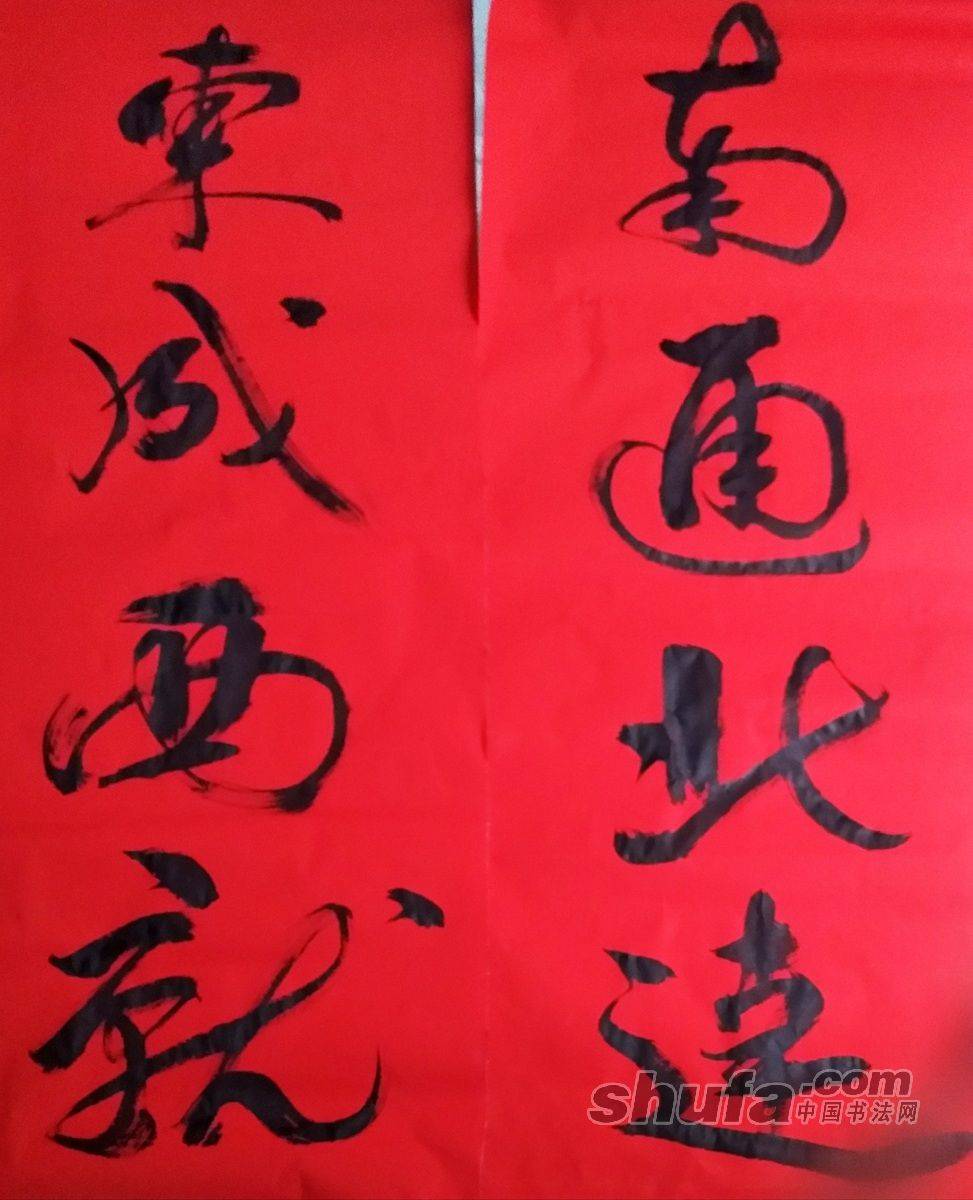 南通北達
東成西就
shufa.com
中国书法网